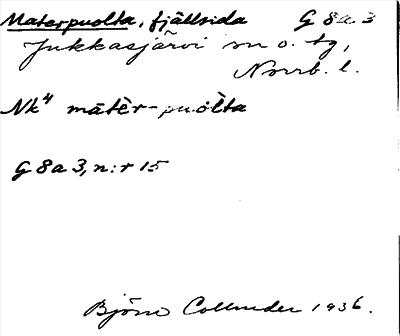 Materpuolta, fjällsida G 8a 3
Jukkasjärvi sn o. tg,
Norrb. l.
Nk⁴ mātèr-puòlta
G 8a 3, n:r 15
Björn Collinder 1936.